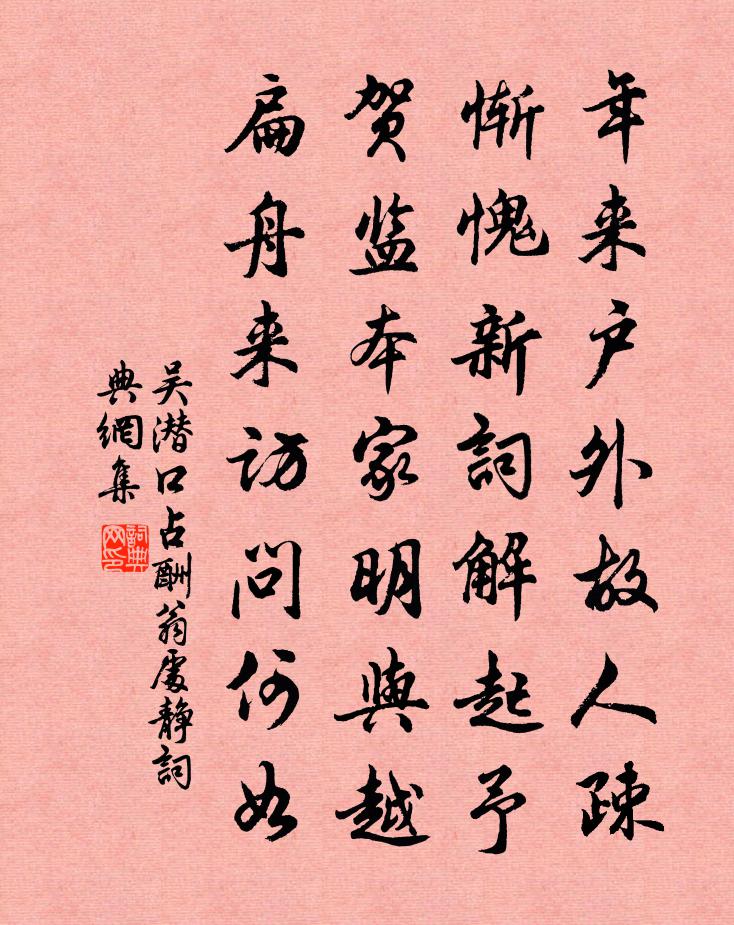 年来户外故人疎
惭愧新詞解起予
贺监本家明與越
扁舟来访问何如
吴潜口占酬翁處静詞
典網集
詞典网印